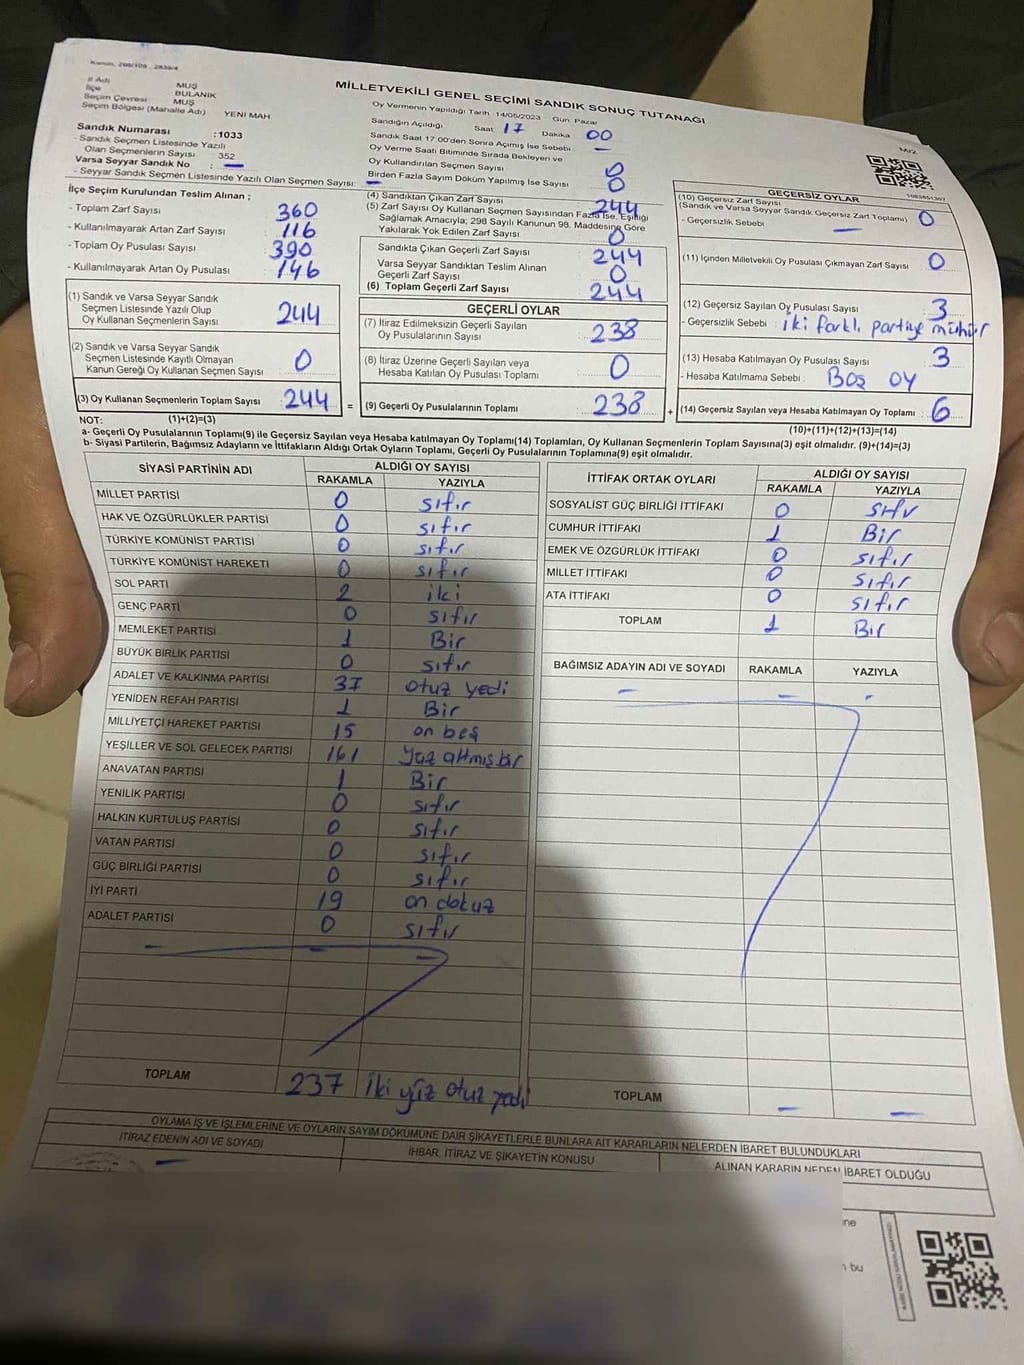 Kanun, 298/105 , 2839/4
İl Adı MUŞ
İlçe BULANIK
Seçim Çevresi MUŞ
Seçim Bölgesi (Mahalle Adı) YENİ MAH
MİLLETVEKİLİ GENEL SEÇİMİ SANDIK SONUÇ TUTANAĞI
M/2
Oy Vermenin Yapıldığı Tarih :14/05/2023 Gün Pazar
Sandığın Açıldığı Saat 17 Dakika 00
Sandık Saat 17:00'den Sonra Açımış İse Sebebi : —
Oy Verme Saati Bitiminde Sırada Bekleyen ve
Oy Kullandırılan Seçmen Sayısı 0
Birden Fazla Sayım Döküm Yapılmış İse Sayısı 0
Sandık Numarası : 1033
- Sandık Seçmen Listesinde Yazılı
Olan Seçmenlerin Sayısı : 352
Varsa Seyyar Sandık No : —
- Seyyar Sandık Seçmen Listesinde Yazılı Olan Seçmen Sayısı: —
İlçe Seçim Kurulundan Teslim Alınan ;
- Toplam Zarf Sayısı : 360
- Kullanılmayarak Artan Zarf Sayısı : 116
- Toplam Oy Pusulası Sayısı : 390
- Kullanılmayarak Artan Oy Pusulası : 146
(1) Sandık ve Varsa Seyyar Sandık
Seçmen Listesinde Yazılı Olup
Oy Kullanan Seçmenlerin Sayısı : 244
(2) Sandık ve Varsa Seyyar Sandık
Seçmen Listesinde Kayıtlı Olmayan
Kanun Gereği Oy Kullanan Seçmen Sayısı : 0
(3) Oy Kullanan Seçmenlerin Toplam Sayısı : 244 =
(1)+(2)=(3)
(4) Sandıktan Çıkan Zarf Sayısı : 244
(5) Zarf Sayısı Oy Kullanan Seçmen Sayısından Fazla İse, Eşitliği
Sağlamak Amacıyla, 298 Sayılı Kanunun 98. Maddesine Göre
Yakılarak Yok Edilen Zarf Sayısı : 0
Sandıkta Çıkan Geçerli Zarf Sayısı : 244
Varsa Seyyar Sandıktan Teslim Alınan
Geçerli Zarf Sayısı : 0
(6) Toplam Geçerli Zarf Sayısı : 244
GEÇERLİ OYLAR
(7) İtiraz Edilmeksizin Geçerli Sayılan
Oy Pusulalarının Sayısı : 238
(8) İtiraz Üzerine Geçerli Sayılan veya
Hesaba Katılan Oy Pusulası Toplamı : 0
(9) Geçerli Oy Pusulalarının Toplamı : 238 +
GEÇERSİZ OYLAR
(10) Geçersiz Zarf Sayısı
(Sandık ve Varsa Seyyar Sandık Geçersiz Zarf Toplamı) : 0
- Geçersizlik Sebebi : —
(11) İçinden Milletvekili Oy Pusulası Çıkmayan Zarf Sayısı : 0
(12) Geçersiz Sayılan Oy Pusulası Sayısı : 3
- Geçersizlik Sebebi : iki farklı partiye mühür
(13) Hesaba Katılmayan Oy Pusulası Sayısı : 3
- Hesaba Katılmama Sebebi : Boş oy
(14) Geçersiz Sayılan veya Hesaba Katılmayan Oy Toplamı : 6
(10)+(11)+(12)+(13)=(14)
NOT:
a- Geçerli Oy Pusulalarının Toplamı(9) ile Geçersiz Sayılan veya Hesaba katılmayan Oy Toplamı(14) Toplamları, Oy Kullanan Seçmenlerin Toplam Sayısına(3) eşit olmalıdır. (9)+(14)=(3)
b- Siyasi Partilerin, Bağımsız Adayların ve İttifakların Aldığı Ortak Oyların Toplamı, Geçerli Oy Pusulalarının Toplamına(9) eşit olmalıdır.
SİYASİ PARTİNİN ADI ALDIĞI OY SAYISI
RAKAMLA YAZIYLA
MİLLET PARTİSİ 0 sıfır
HAK VE ÖZGÜRLÜKLER PARTİSİ 0 sıfır
TÜRKİYE KOMÜNİST PARTİSİ 0 sıfır
TÜRKİYE KOMÜNİST HAREKETİ 0 sıfır
SOL PARTİ 2 iki
GENÇ PARTİ 0 sıfır
MEMLEKET PARTİSİ 1 Bir
BÜYÜK BİRLİK PARTİSİ 0 sıfır
ADALET VE KALKINMA PARTİSİ 37 otuz yedi
YENİDEN REFAH PARTİSİ 1 Bir
MİLLİYETÇİ HAREKET PARTİSİ 15 on beş
YEŞİLLER VE SOL GELECEK PARTİSİ 161 Yüz altmış bir
ANAVATAN PARTİSİ 1 Bir
YENİLİK PARTİSİ 0 sıfır
HALKIN KURTULUŞ PARTİSİ 0 sıfır
VATAN PARTİSİ 0 sıfır
GÜÇ BİRLİĞİ PARTİSİ 0 sıfır
İYİ PARTİ 19 on dokuz
ADALET PARTİSİ 0 sıfır
TOPLAM 237 iki yüz otuz yedi
İTTİFAK ORTAK OYLARI ALDIĞI OY SAYISI
RAKAMLA YAZIYLA
SOSYALİST GÜÇ BİRLİĞİ İTTİFAKI 0 sıfır
CUMHUR İTTİFAKI 1 Bir
EMEK VE ÖZGÜRLÜK İTTİFAKI 0 sıfır
MİLLET İTTİFAKI 0 sıfır
ATA İTTİFAKI 0 sıfır
TOPLAM 1 Bir
BAĞIMSIZ ADAYIN ADI VE SOYADI RAKAMLA YAZIYLA
— — —
TOPLAM — —
OYLAMA İŞ VE İŞLEMLERİNE VE OYLARIN SAYIM DÖKÜMÜNE DAİR ŞİKAYETLERLE BUNLARA AİT KARARLARIN NELERDEN İBARET BULUNDUKLARI
İTİRAZ EDENİN ADI VE SOYADI İHBAR, İTİRAZ VE ŞİKAYETİN KONUSU ALINAN KARARIN NEDEN İBARET OLDUĞU
—